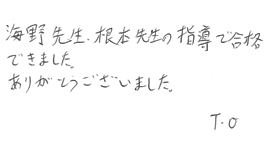 海野先生、根本先生の指導で合格
できました。
ありがとうございました。
T.O